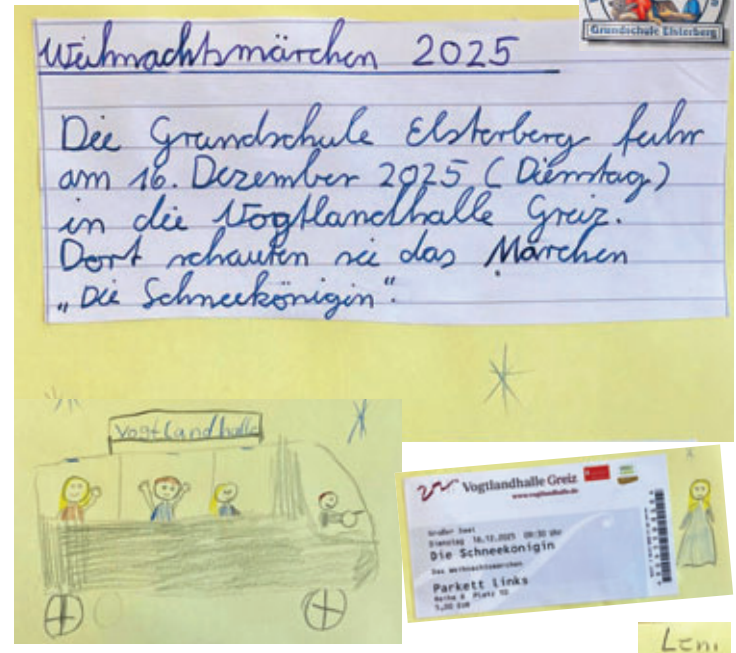 Grundschule Elsterberg
Weihnachtsmärchen 2025
Die Grundschule Elsterberg fuhr
am 16. Dezember 2025 (Dienstag)
in die Vogtlandhalle Greiz.
Dort schauten sie das Märchen
„Die Schneekönigin".
Vogtlandhalle
Vogtlandhalle Greiz
www.vogtlandhalle.de
Großer Saal
Dienstag 16.12.2025 09:30 Uhr
Die Schneekönigin
Das Weihnachtsmärchen
Parkett links
Reihe 6 Platz 10
5,00 EUR
Leni